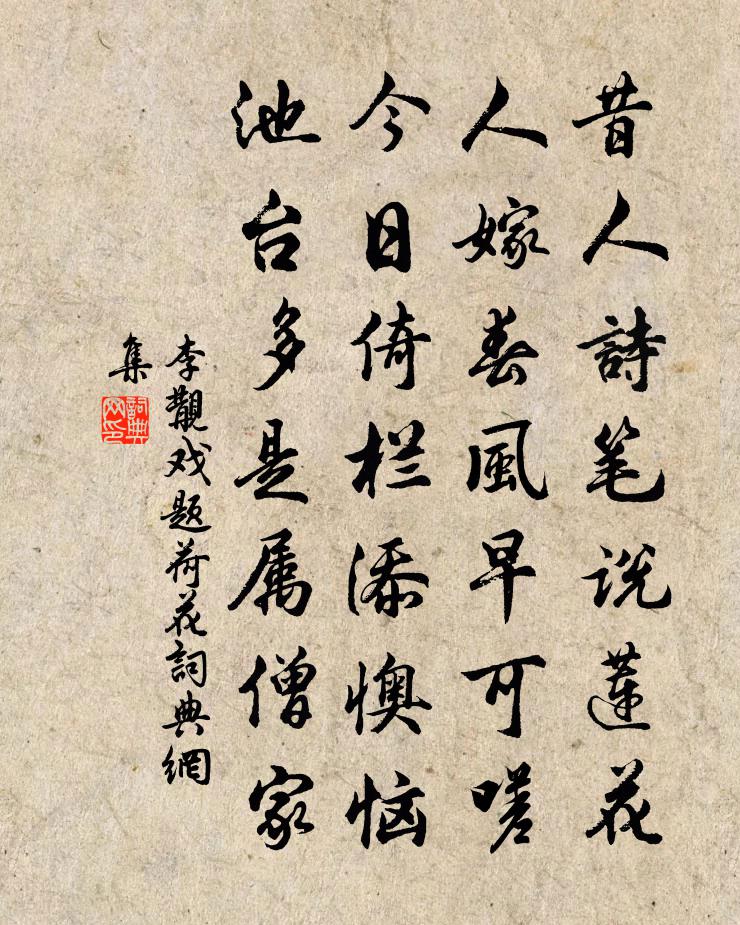 昔人詩笔说蓮花
人嫁春風早可嗟
今日倚栏添懊恼
池台多是属僧家
李覯戏题荷花詞典網
集
詞典
网印